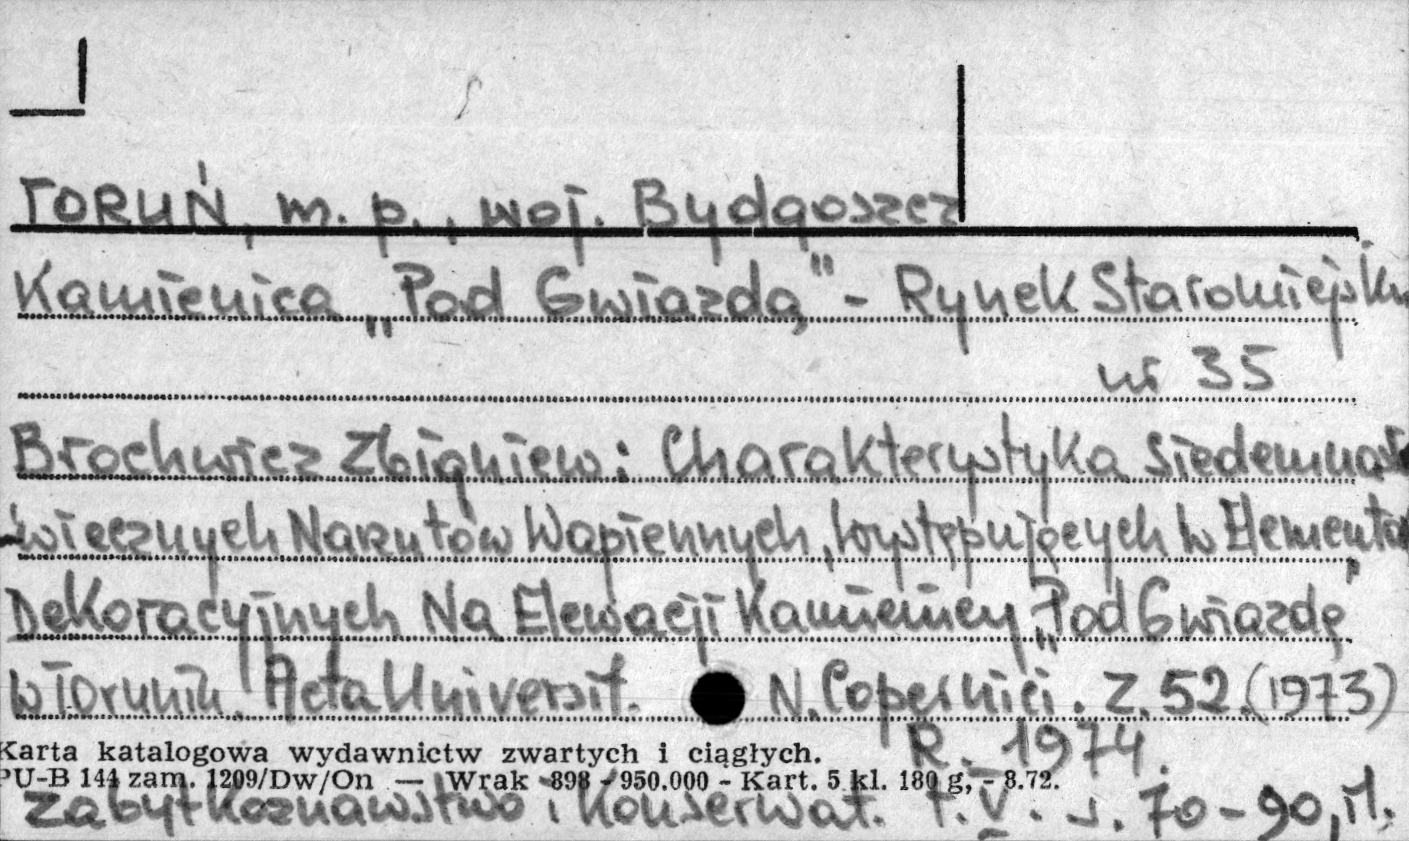 TORUŃ, m. p., woj. Bydgoszcz
Kamienica „Pod Gwiazdą" - Rynek Staromiejski
nr 35
Brochwicz Zbigniew: Charakterystyka siedemnasto
-wiecznych Narzutów Wapiennych, występujących w Elementa
Dekoracyjnych Na Elewacji Kamienicy „Pod Gwiazdą"
w Toruniu. Acta Universit. N. Copernici. Z. 52. (1973)
R. 1974.
Karta katalogowa wydawnictw zwartych i ciągłych.
PU-B 144 zam. 1209/Dw/On — Wrak 898 - 950.000 - Kart. 5 kl. 180 g, - 8.72.
Zabytkoznawstwo i Konserwat. t. V. s. 70-90, il.